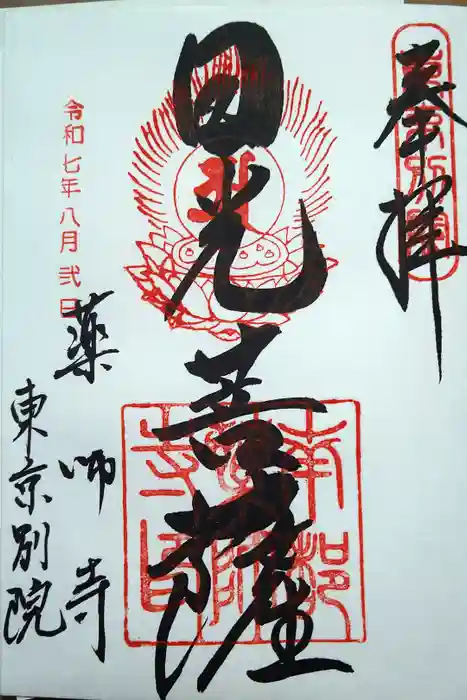 奉拝
東京別院
日光菩薩
令和七年八月弐日
薬師寺
東京別院